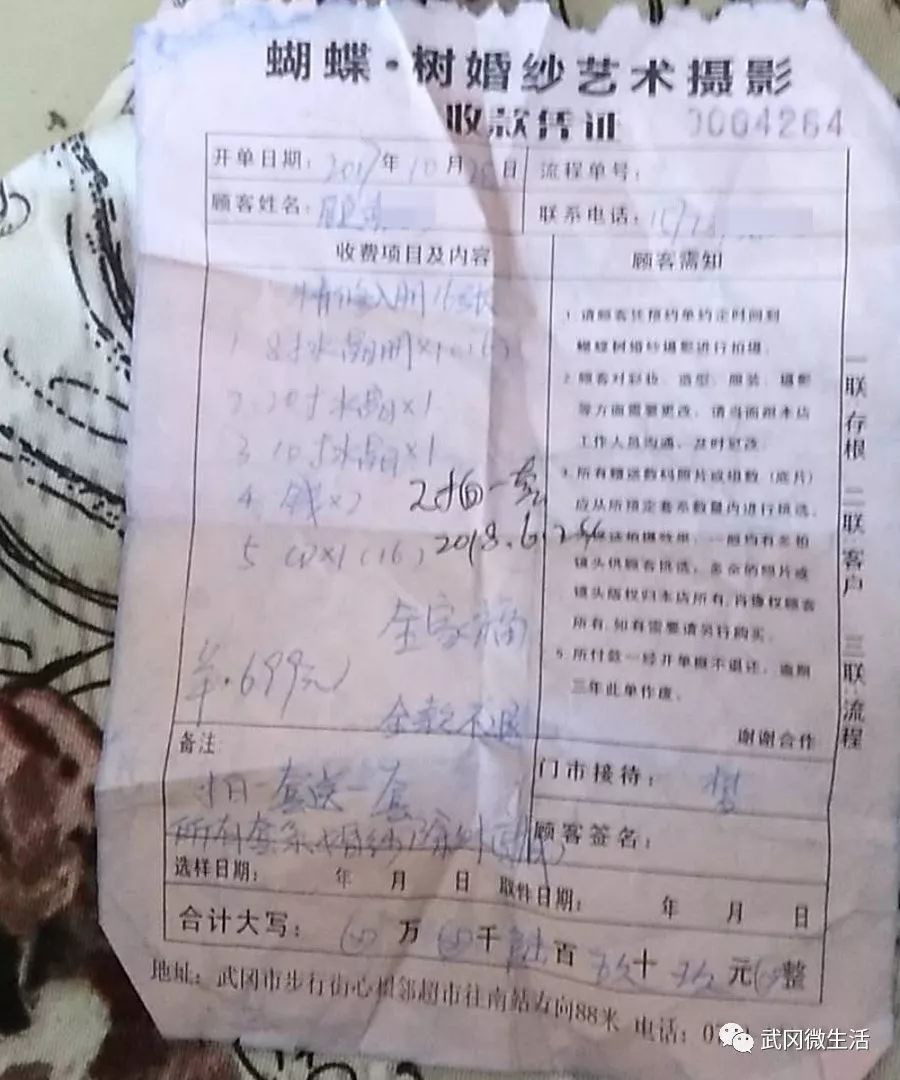 蝴蝶·树婚纱艺术摄影
收款凭证 0004264
开单日期: 2017年10月 日 流程单号:
顾客姓名: 联系电话:
收费项目及内容 顾客需知
精修入册16张
1. 8寸水晶册×1(16)
2. 20寸水晶×1
3. 10寸水晶×1
4. 钱×2
5 CD×1(16)
2寸 一套
2018.6.2
全家福
羊.699元
全款不退
1.请顾客凭预约单约定时间到
蝴蝶树婚纱摄影进行拍摄.
2.顾客对彩妆、造型、服装、摄影
等方面需要更改,请当面跟本店
工作人员沟通,及时更改.
3.所有赠送数码照片或组数(底片)
应从所预定套系数量内进行挑选.
一般均有多拍
镜头供顾客挑选,多余的照片或
镜头版权归本店所有,肖像权顾客
所有,如有需要请另行购买.
5.所付款一经开单概不退还,逾期
三年此单作废.
谢谢合作
一联存根 二联客户 三联流程
备注:
拍一套送一套
所有套系婚纱除外
门市接待:
顾客签名:
选样日期: 年 月 日 取件日期: 年 月 日
合计大写: 万 千陆百玖十玖元 整
地址: 武冈市步行街心相邻超市往南站方向88米 电话: 07
武冈微生活